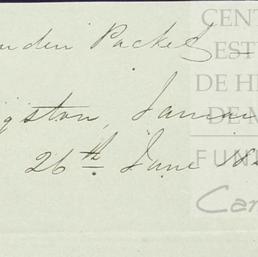 nden Packet
gston, Jamai
26th June 18
CENT
EST
DE HI
DE M
FUN
Car